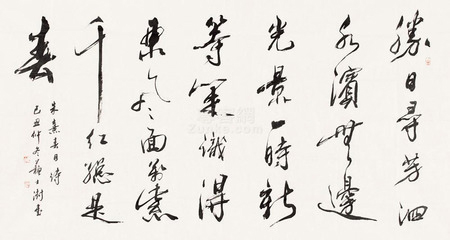 勝日尋芳泗
水濱無邊
光景一時新
等閒識得
東風面萬紫
千紅總是
春
朱熹春日詩
己丑仲冬蘇士澍書